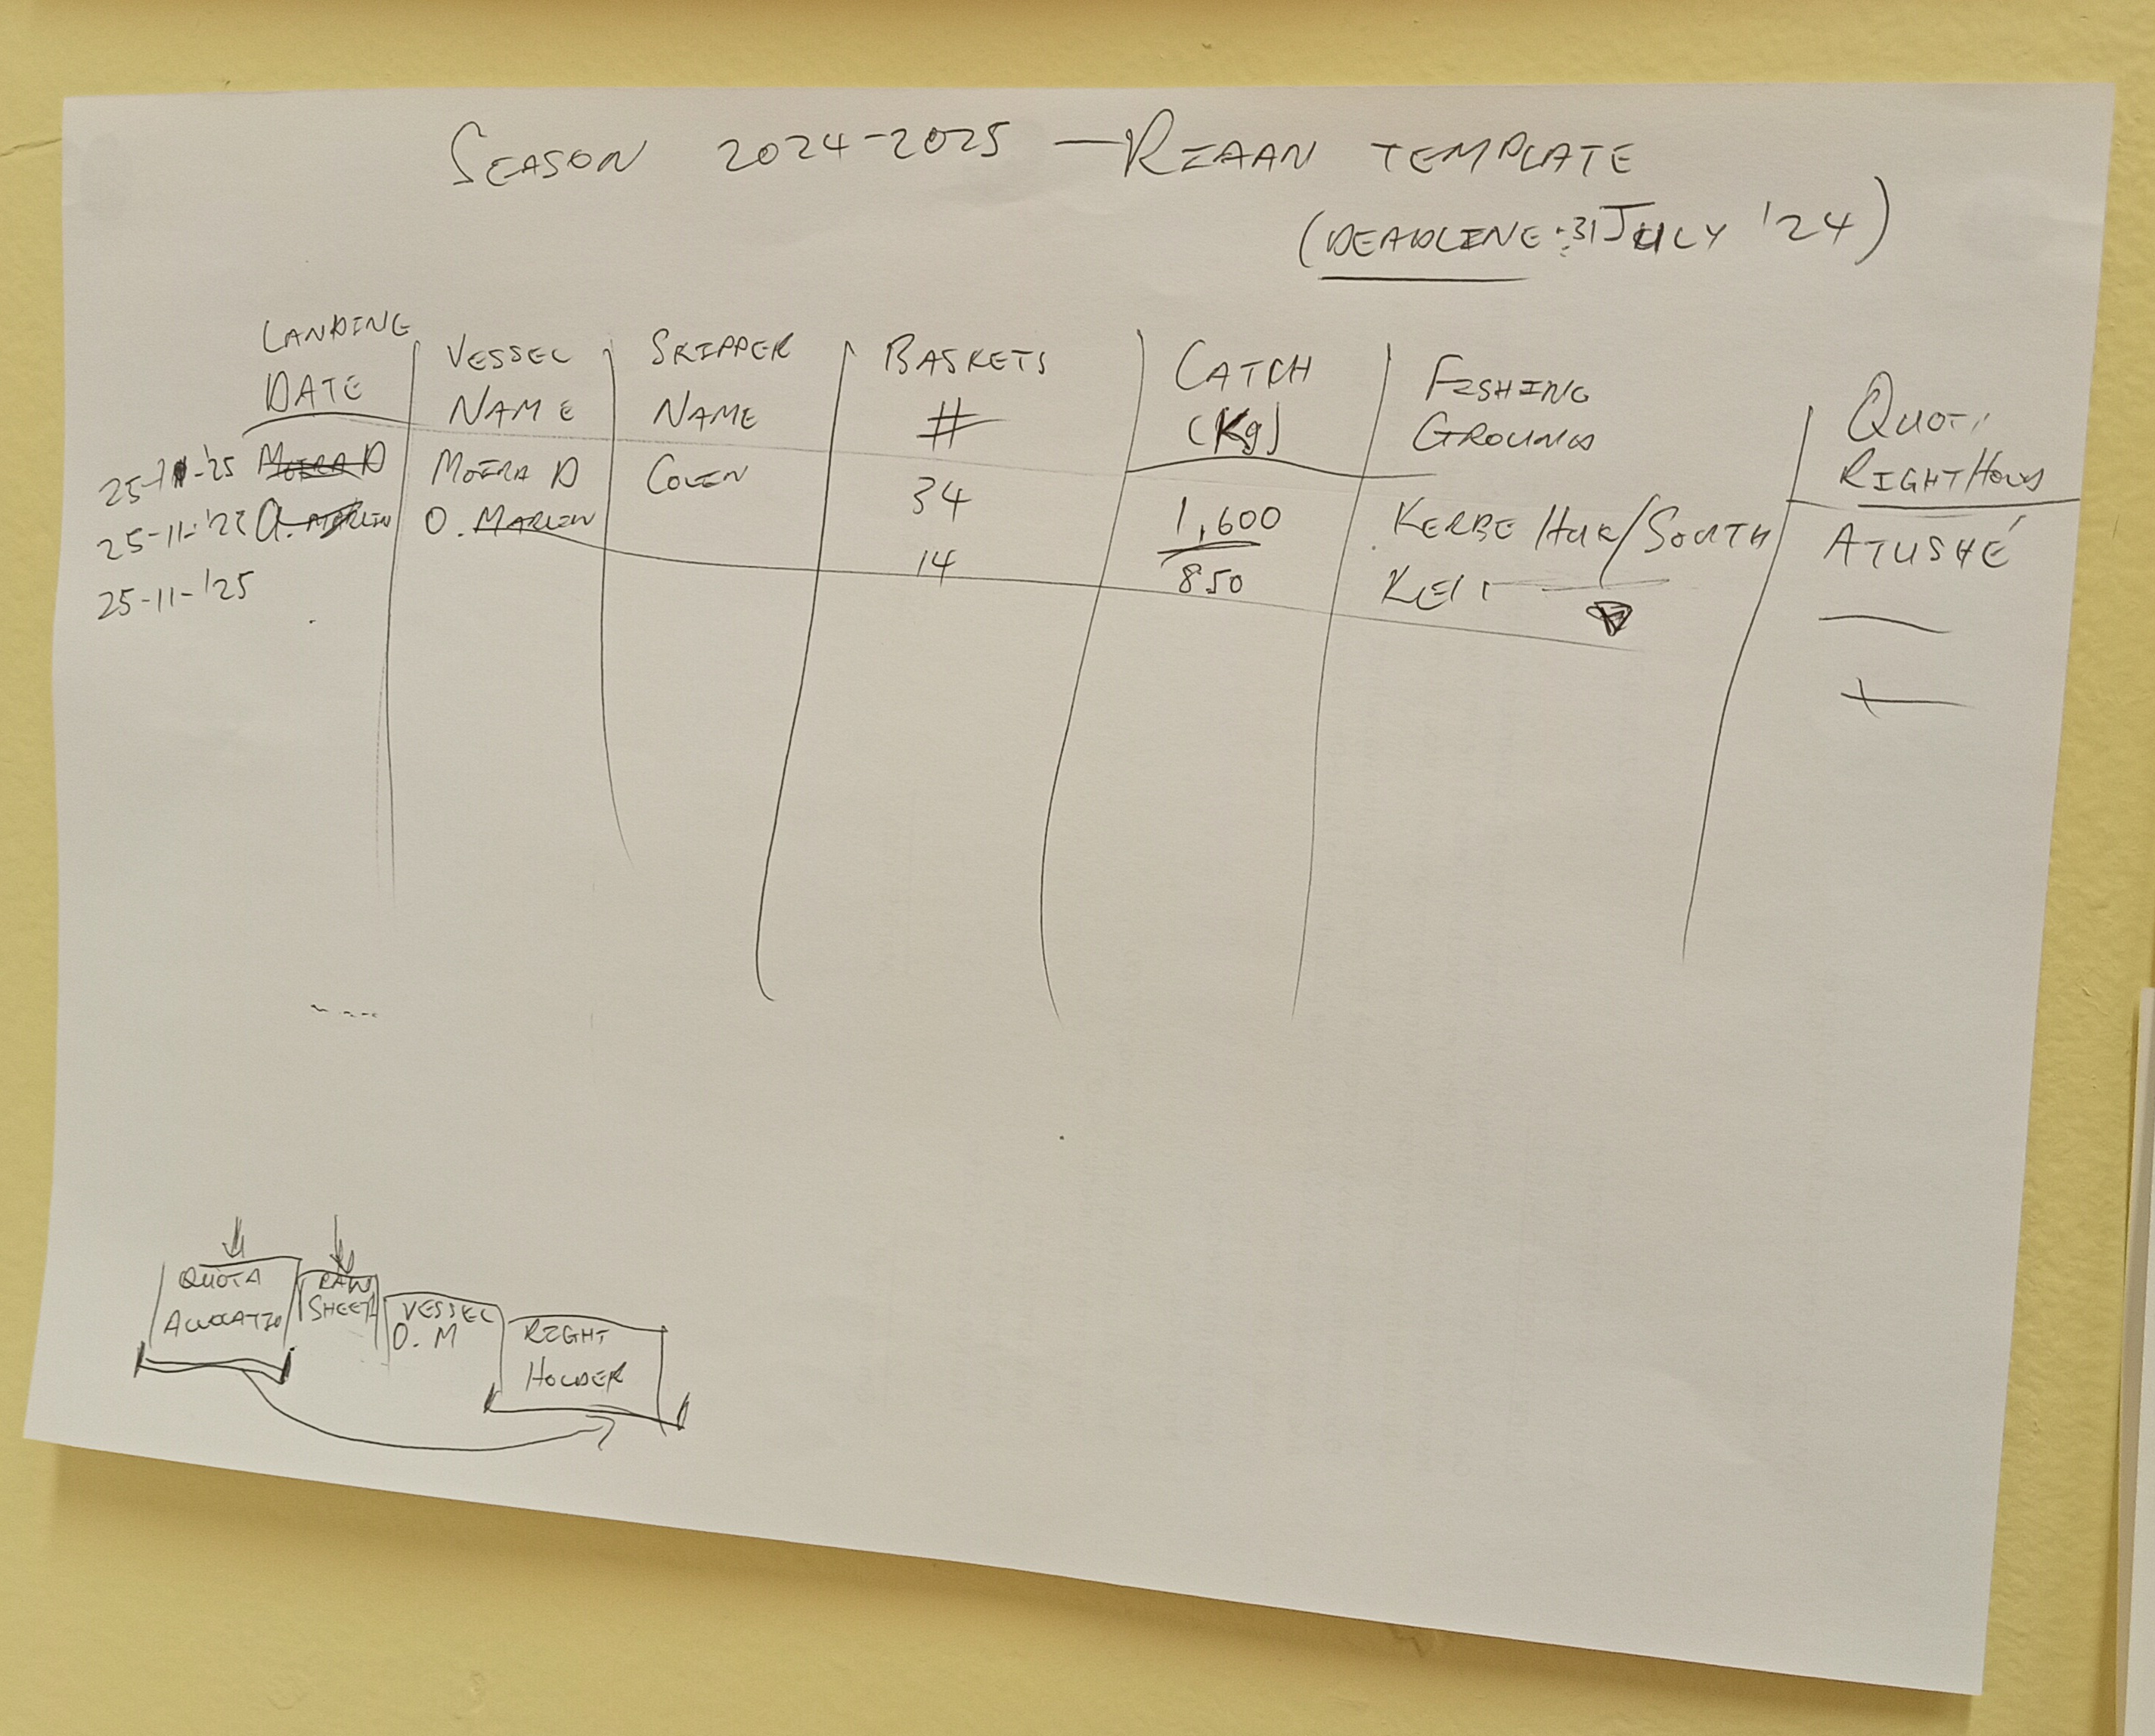 SEASON 2024-2025 — RIAAN TEMPLATE
(DEADLINE: 31 JULY '24)
LANDING DATE
VESSEL NAME
SKIPPER NAME
BASKETS #
CATCH (Kg)
FISHING GROUNDS
RIGHT
25-11-'25 MOIRA D MOIRA D COLIN 34 1,600 SOUTH ATUSHÉ
25-11- O. MARLIN 14 850
25-11-'25
QUOTA
RAW SHEET
VESSEL O.M
RIGHT HOLDER